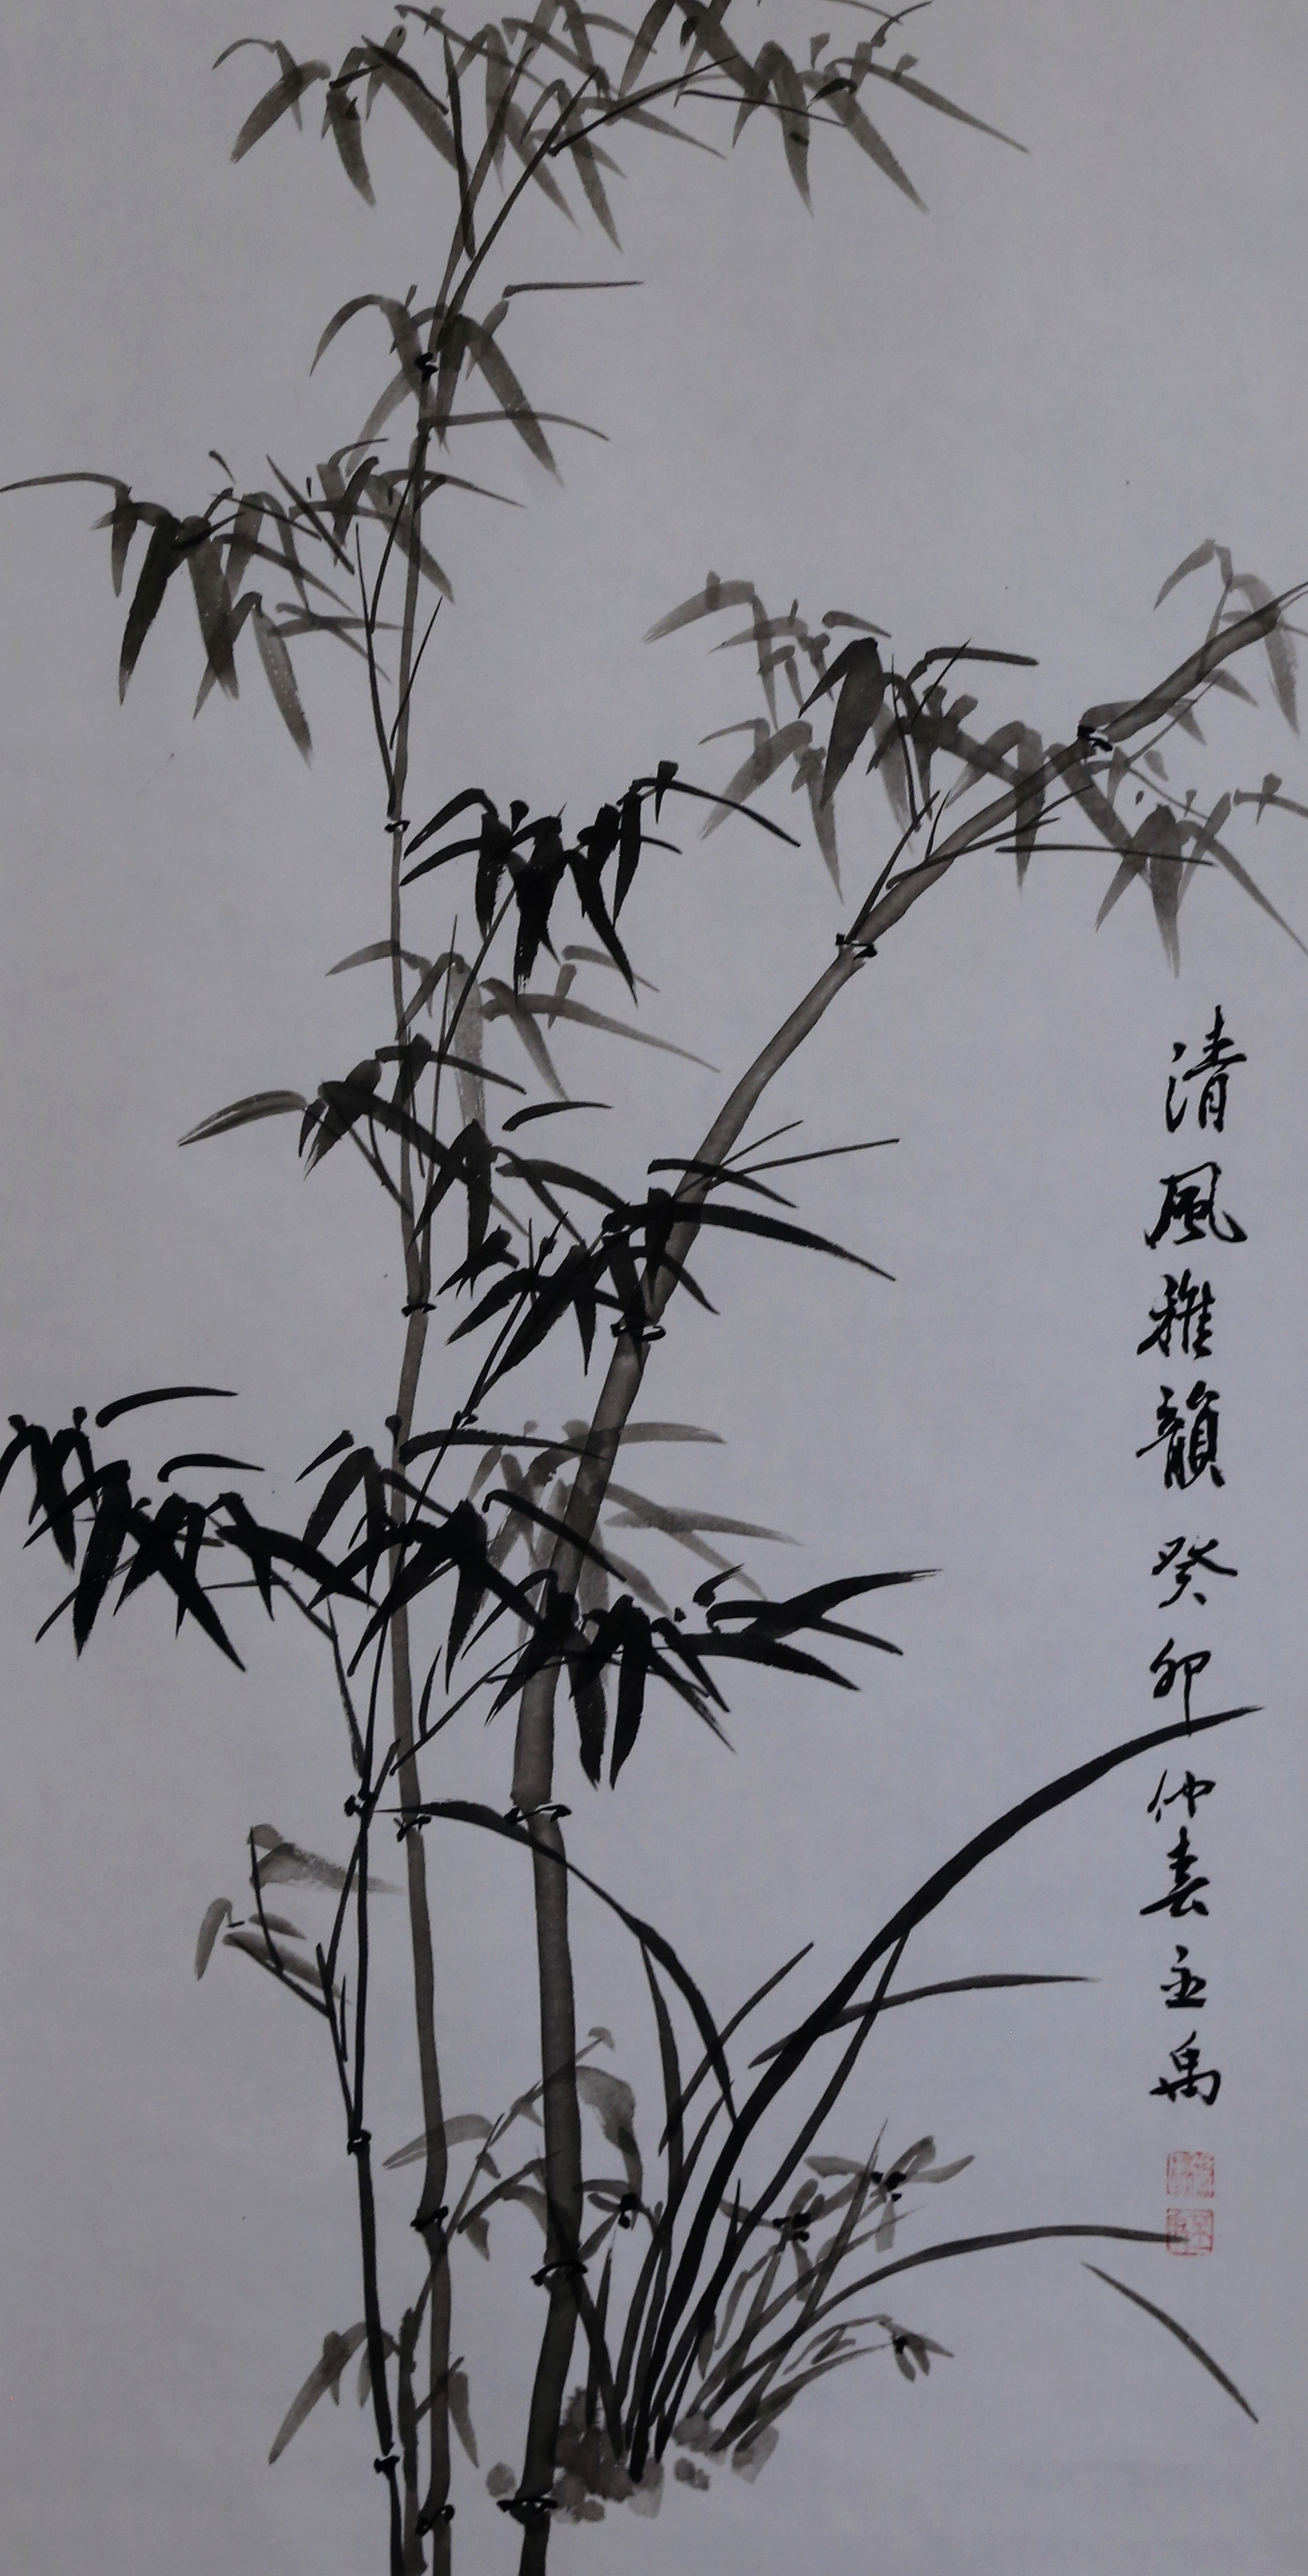 清風雅韻 癸卯仲春 禹